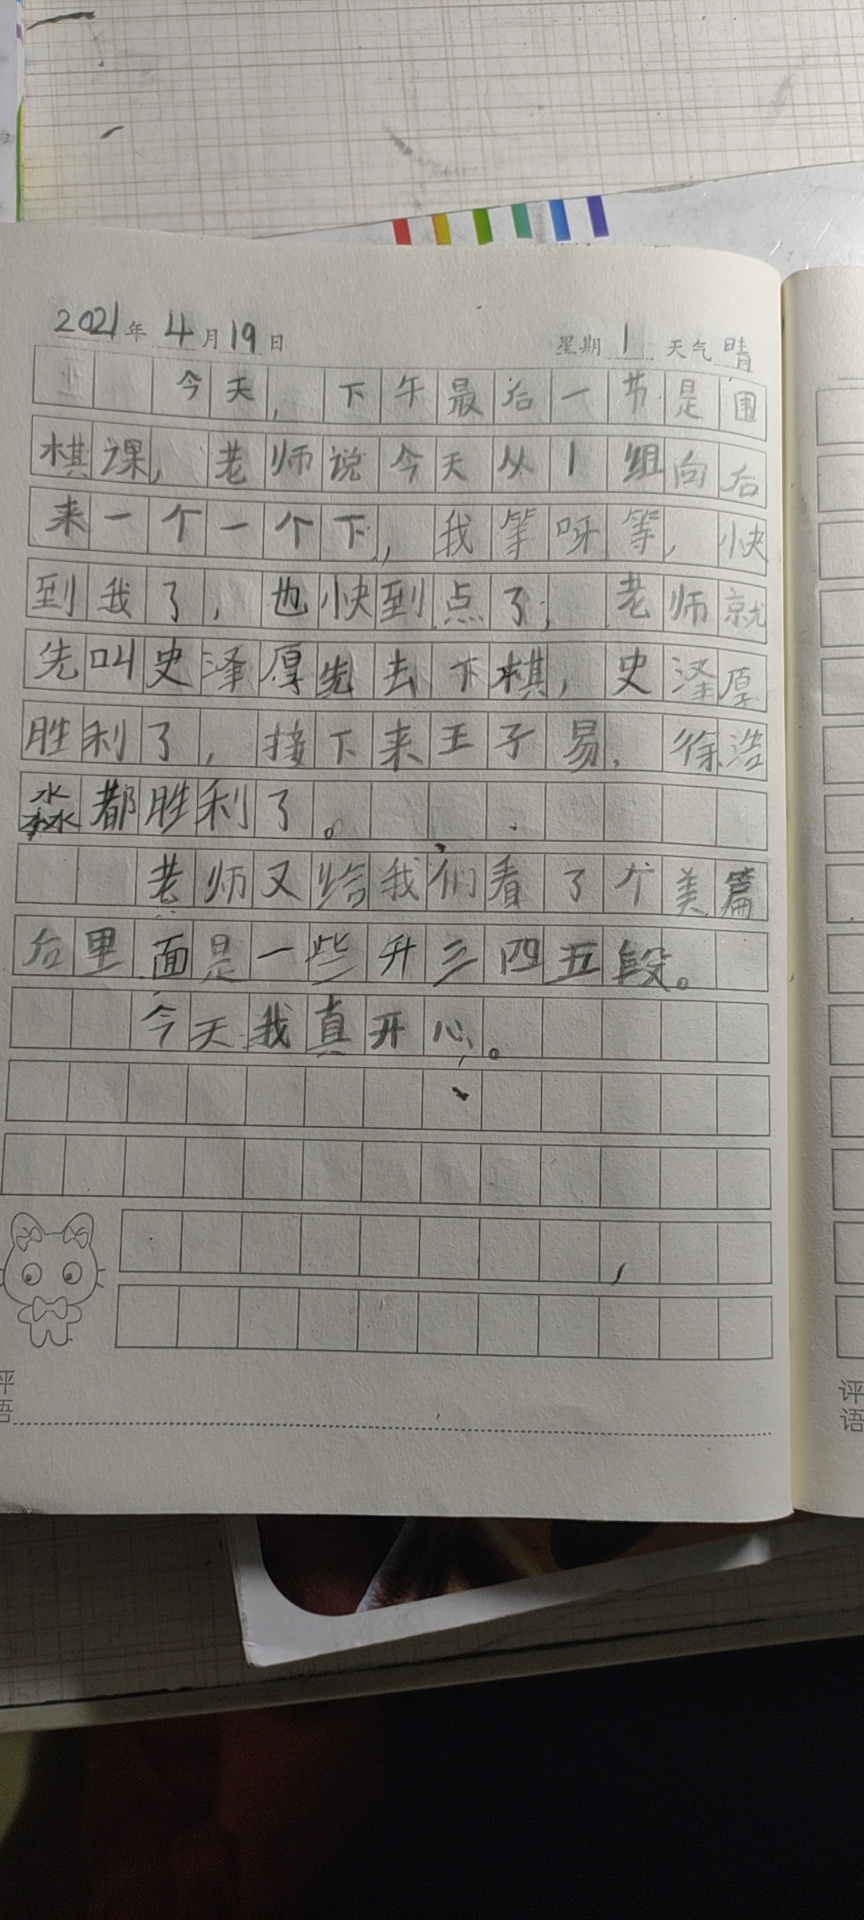 2021年4月19日 星期1 天气晴
今天，下午最后一节是围
棋课，老师说今天从1组向后
来一个一个下，我等呀等，快
到我了，也快到点了，老师就
先叫史泽厚先去下棋，史泽厚
胜利了，接下来王子易，徐浩
淼都胜利了。
老师又给我们看了个美篇
后里面是一些升三四五段。
今天我真开心。
评语
评语